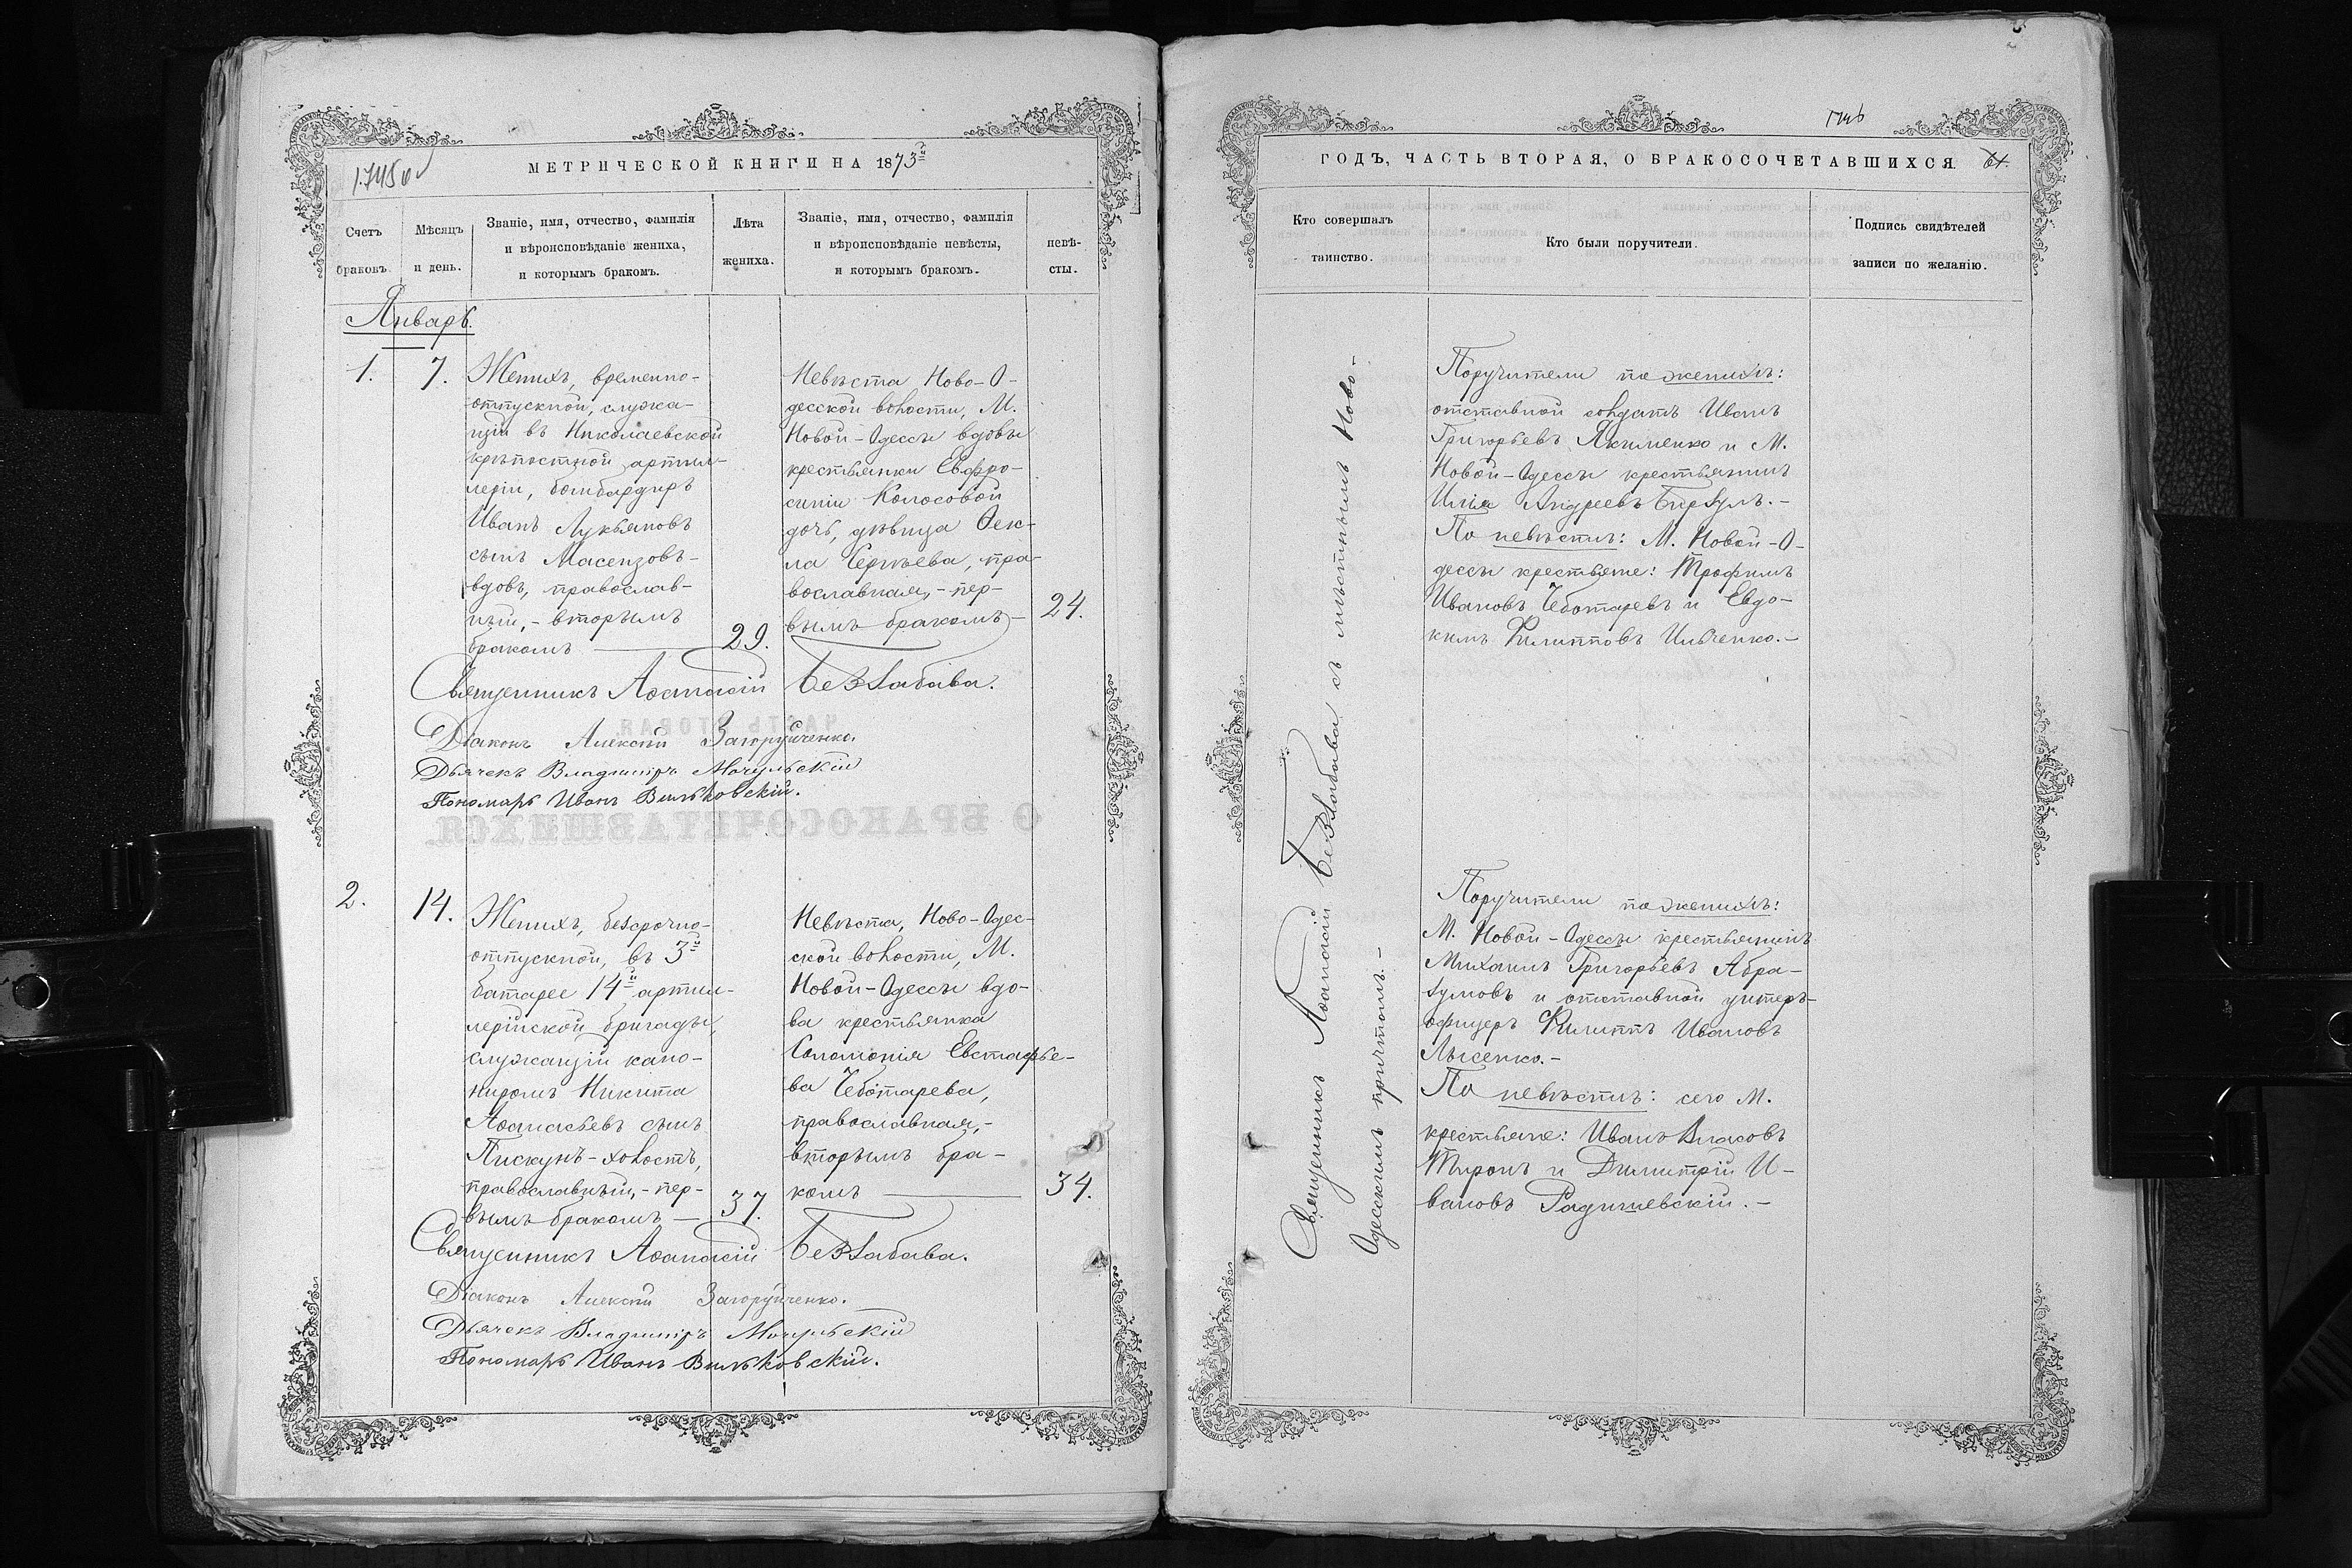 МЕТРИЧЕСКОЙ КНИГИ НА 1873й
Счетъ браковъ.
Мѣсяцъ и день.
Званіе, имя, отчество, фамилія
и вѣроисповѣданіе жениха,
и которымъ бракомъ.
Лѣта
жениха.
Званіе, имя, отчество, фамилія
и вѣроисповѣданіе невѣсты,
и которымъ бракомъ.
невѣ-
сты.
Январь.
1.
7.
Женихъ, временно-
отпускной, служа-
щій въ Николаевской
крѣпостной артил-
леріи, бомбардиръ
Иванъ Лукьяновъ
сынъ Масензовъ-
вдовъ, православ-
ный, - вторымъ
бракомъ
29.
Невѣста Ново-О-
десской волости, М.
Новой-Одессы вдовы
крестьянки Евфро-
синіи Колосовой
дочь, дѣвица Ѳек-
ла Сергѣева, пра-
вославная, - пер-
вымъ бракомъ -
24.
Священникъ Аѳанасій Беззабава.
Діаконъ Алексѣй Загоруйченко.
Дьячекъ Владиміръ Мочульскій
Пономарь Иванъ Вильковскій.
2.
14.
Женихъ, безсрочно-
отпускной, въ 3й
батарее 14й артил-
лерійской бригады,
служащій кано-
ниромъ Никита
Аѳанасьевъ сынъ
Пискунъ - холостъ,
православный, - пер-
вымъ бракомъ -
37.
Невѣста, Ново-Одес-
ской волости, М.
Новой-Одессы вдо-
ва крестьянка
Соломонія Евстафье-
ва Чеботарева,
православная, -
вторымъ бра-
комъ
34.
Священникъ Аѳанасій Беззабава.
Діаконъ Алексѣй Загоруйченко.
Дьячекъ Владиміръ Мочульскій
Пономарь Иванъ Вильковскій.
ГОДЪ, ЧАСТЬ ВТОРАЯ, О БРАКОСОЧЕТАВШИХСЯ.
Кто совершалъ
таинство.
Кто были поручители.
Подпись свидѣтелей
записи по желанію.
Священникъ Аѳанасій Беззабава съ мѣстнымъ Ново-
Одесскимъ причтомъ. -
Поручители по женихѣ:
отставной солдатъ Иванъ
Григорьевъ Якименко и М.
Новой-Одессы крестьянинъ
Илія Андреевъ Бирзулъ. -
По невѣстѣ: М. Новой-О-
дессы крестьяне: Трофимъ
Ивановъ Чеботаревъ и Евдо-
кимъ Филипповъ Ильченко. -
Поручители по женихѣ:
М. Новой-Одессы крестьянинъ
Михаилъ Григорьевъ Абра-
зумовъ и отставной унтеръ-
офицеръ Филиппъ Ивановъ
Лысенко. -
По невѣстѣ: сего М.
крестьяне: Иванъ Власовъ
Тиронъ и Димитрій И-
вановъ Радишевскій. -